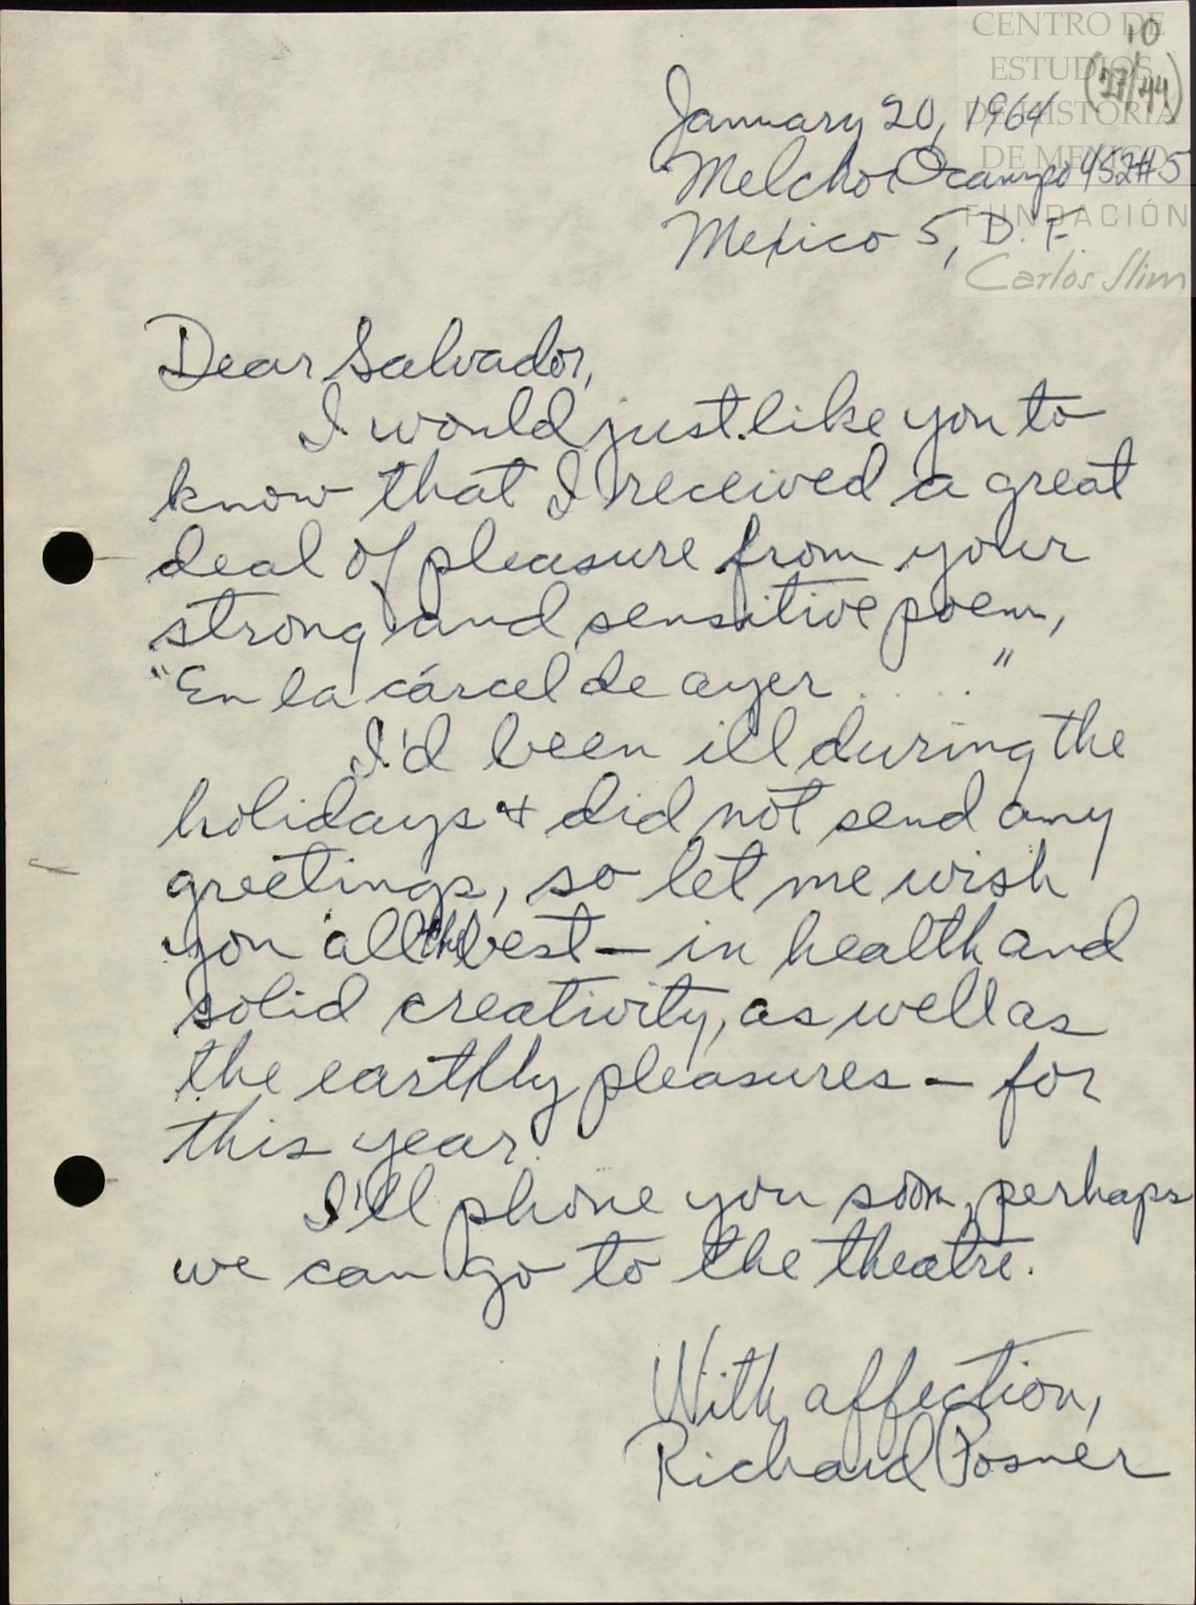 CENTRO DE
ESTUDIOS
DE HISTORIA
DE MEXICO
FUNDACIÓN
Carlos Slim
10
January 20, 1964
Melchor Ocampo 452#5
Mexico 5, D. F.
Dear Salvador,
I would just like you to
know that I received a great
deal of pleasure from your
strong and sensitive poem,
"En la cárcel de ayer . . . . ."
I'd been ill during the
holidays & did not send any
greetings, so let me wish
you all the best — in health and
solid creativity, as well as
the earthly pleasures — for
this year.
I'll phone you soon, perhaps
we can go to the theatre.
With affection,
Richard Posner